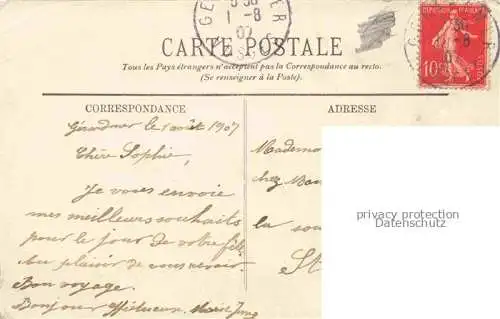 GE
ER
1 -8
07
CARTE POSTALE
Tous les Pays étrangers n'acceptent pas la Correspondance au recto.
(Se renseigner à la Poste).
10
CORRESPONDANCE
ADRESSE
Gérardmer le 1 août 1907
Chère Sophie,
Je vous envoie
mes meilleurs souhaits
pour le jour de votre fête
Au plaisir de vous revoir.
Bon voyage.
Bonjour affectueux. Marie Jung
Mademo
chez
la
St
privacy protection
Datenschutz